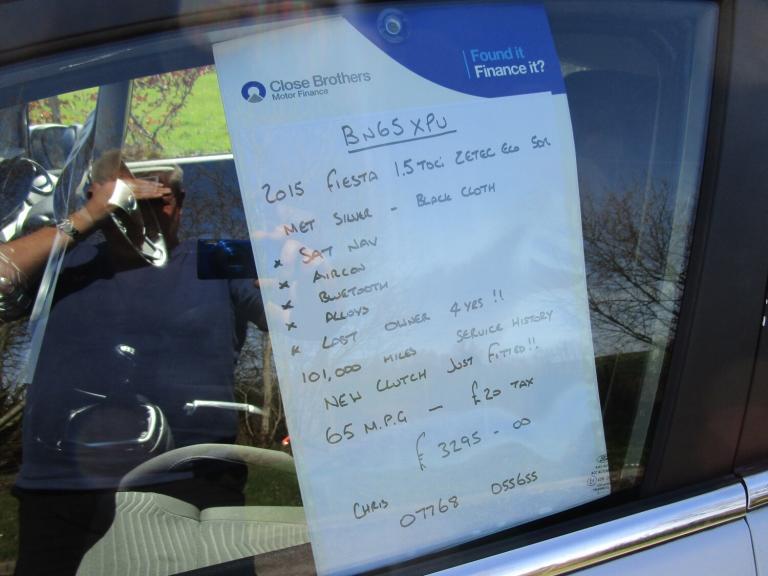 Close Brothers
Motor Finance
Found it
Finance it?
BN65 XPU
2015 FIESTA 1.5 TDCi ZETEC ECO 5DR
MET SILVER - BLACK CLOTH
* SAT NAV
* AIRCON
* BLUETOOTH
* ALLOYS
* LAST OWNER 4 YRS !!
101,000 MILES SERVICE HISTORY
NEW CLUTCH JUST FITTED!!
65 M.P.G - £20 TAX
£3295-00
CHRIS 07768 055655